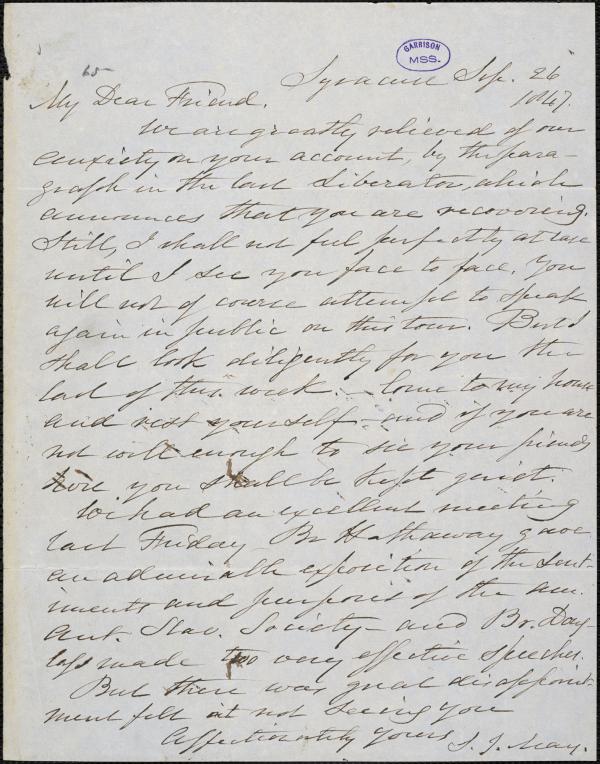 GARRISON
MSS.
65
Syracuse Sep. 26
1847.
My Dear Friend,
We are greatly relieved of our
anxiety on your account, by the para-
graph in the last Liberator, which
announces that you are recovering.
Still, I shall not feel perfectly at ease
until I see you face to face. You
will not of course attempt to speak
again in public on this tour. But I
shall look diligently for you the
last of this week. - Come to my house
and rest yourself - and if you are
not well enough to see your friends
here you shall be kept quiet.
We had an excellent meeting
last Friday - Br Hathaway gave
an admirable exposition of the sent-
iments and purposes of the Am.
Ant. Slav. Society - and Br. Doug-
lass made two very effective speeches.
But there was great disappoint-
ment felt at not seeing you
Affectionately yours
S. J. May.